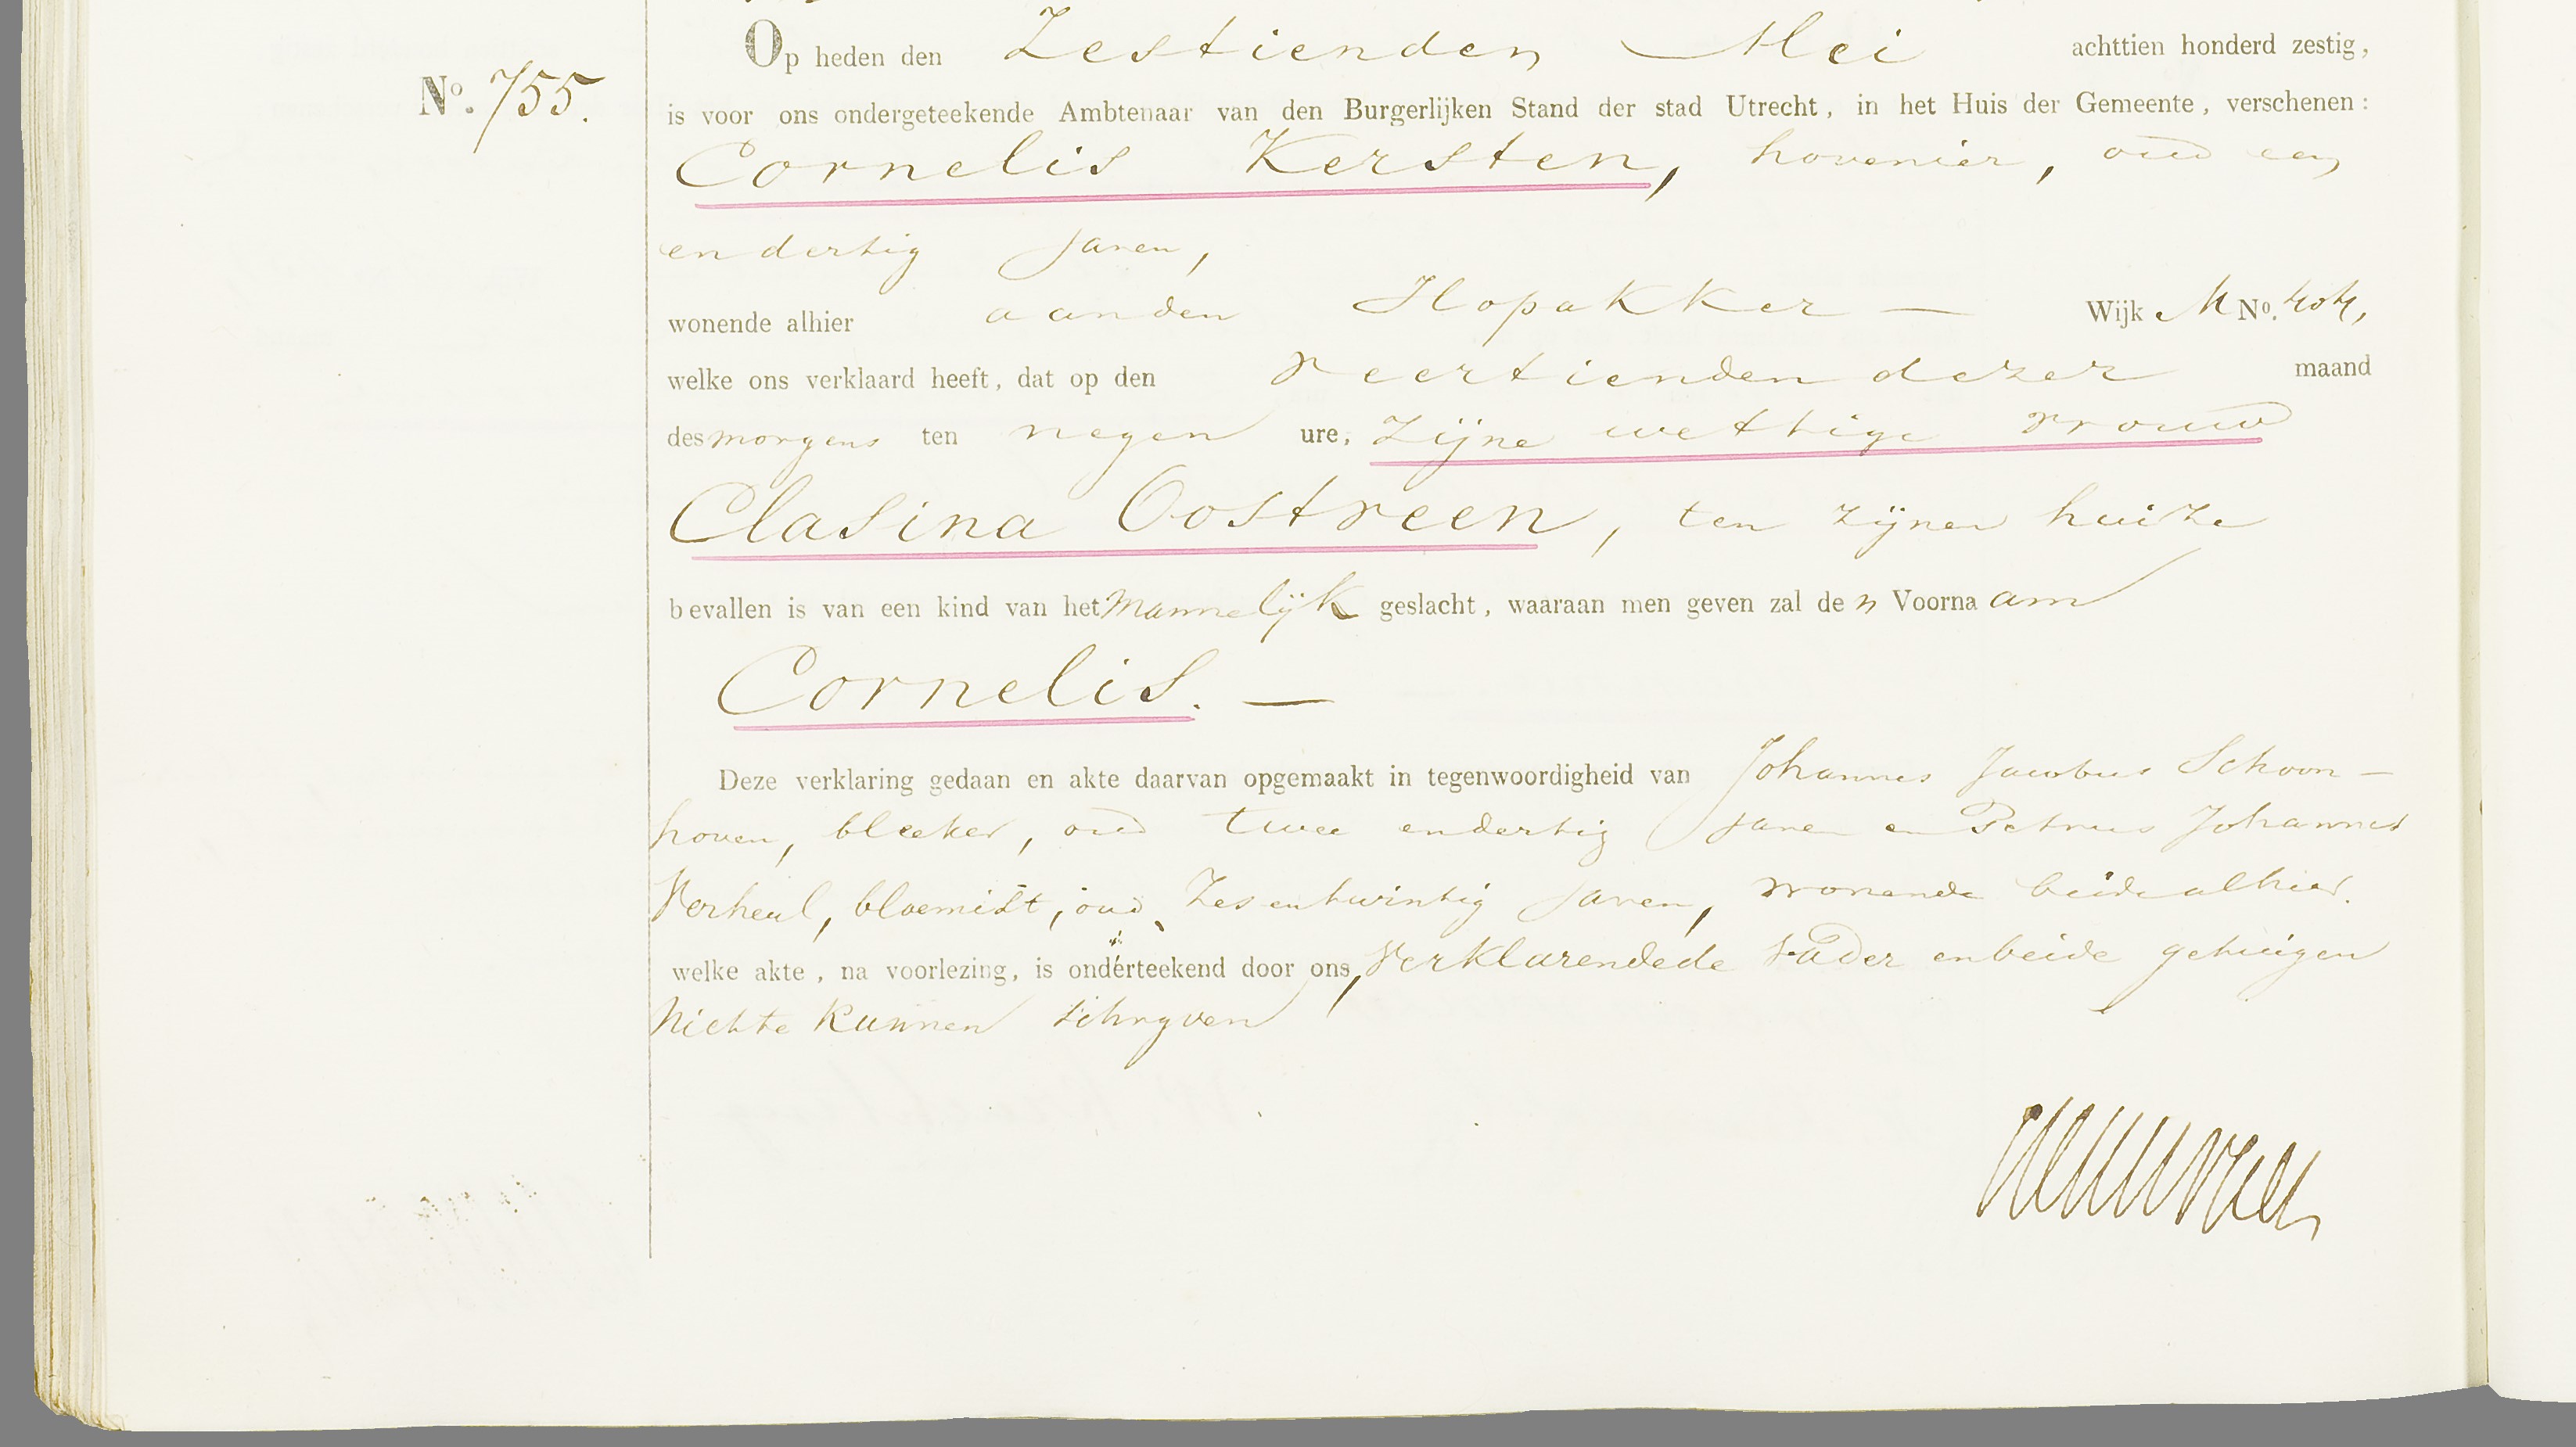 Op heden den Zestienden Mei achttien honderd zestig,
No. 755.
is voor ons ondergeteekende Ambtenaar van den Burgerlijken Stand der stad Utrecht, in het Huis der Gemeente, verschenen:
Cornelis Kersten, hovenier, oud een
en dertig Jaren,
wonende alhier aan den Hopakker — Wijk M No. 404,
welke ons verklaard heeft, dat op den veertienden dezer maand
des morgens ten negen ure, zijne wettige vrouw
Clasina Oostveen, ten zijnen huize
bevallen is van een kind van het Mannelijk geslacht, waaraan men geven zal den Voornaam
Cornelis. —
Deze verklaring gedaan en akte daarvan opgemaakt in tegenwoordigheid van Johannes Jacobus Schoon-
hoven, bleeker, oud twee en dertig Jaren en Petrus Johannes
Verheul, bloemist, oud Zes en twintig Jaren, wonende beide alhier.
welke akte, na voorlezing, is onderteekend door ons, Verklarende de Vader en beide getuigen
Niet te Kunnen schryven